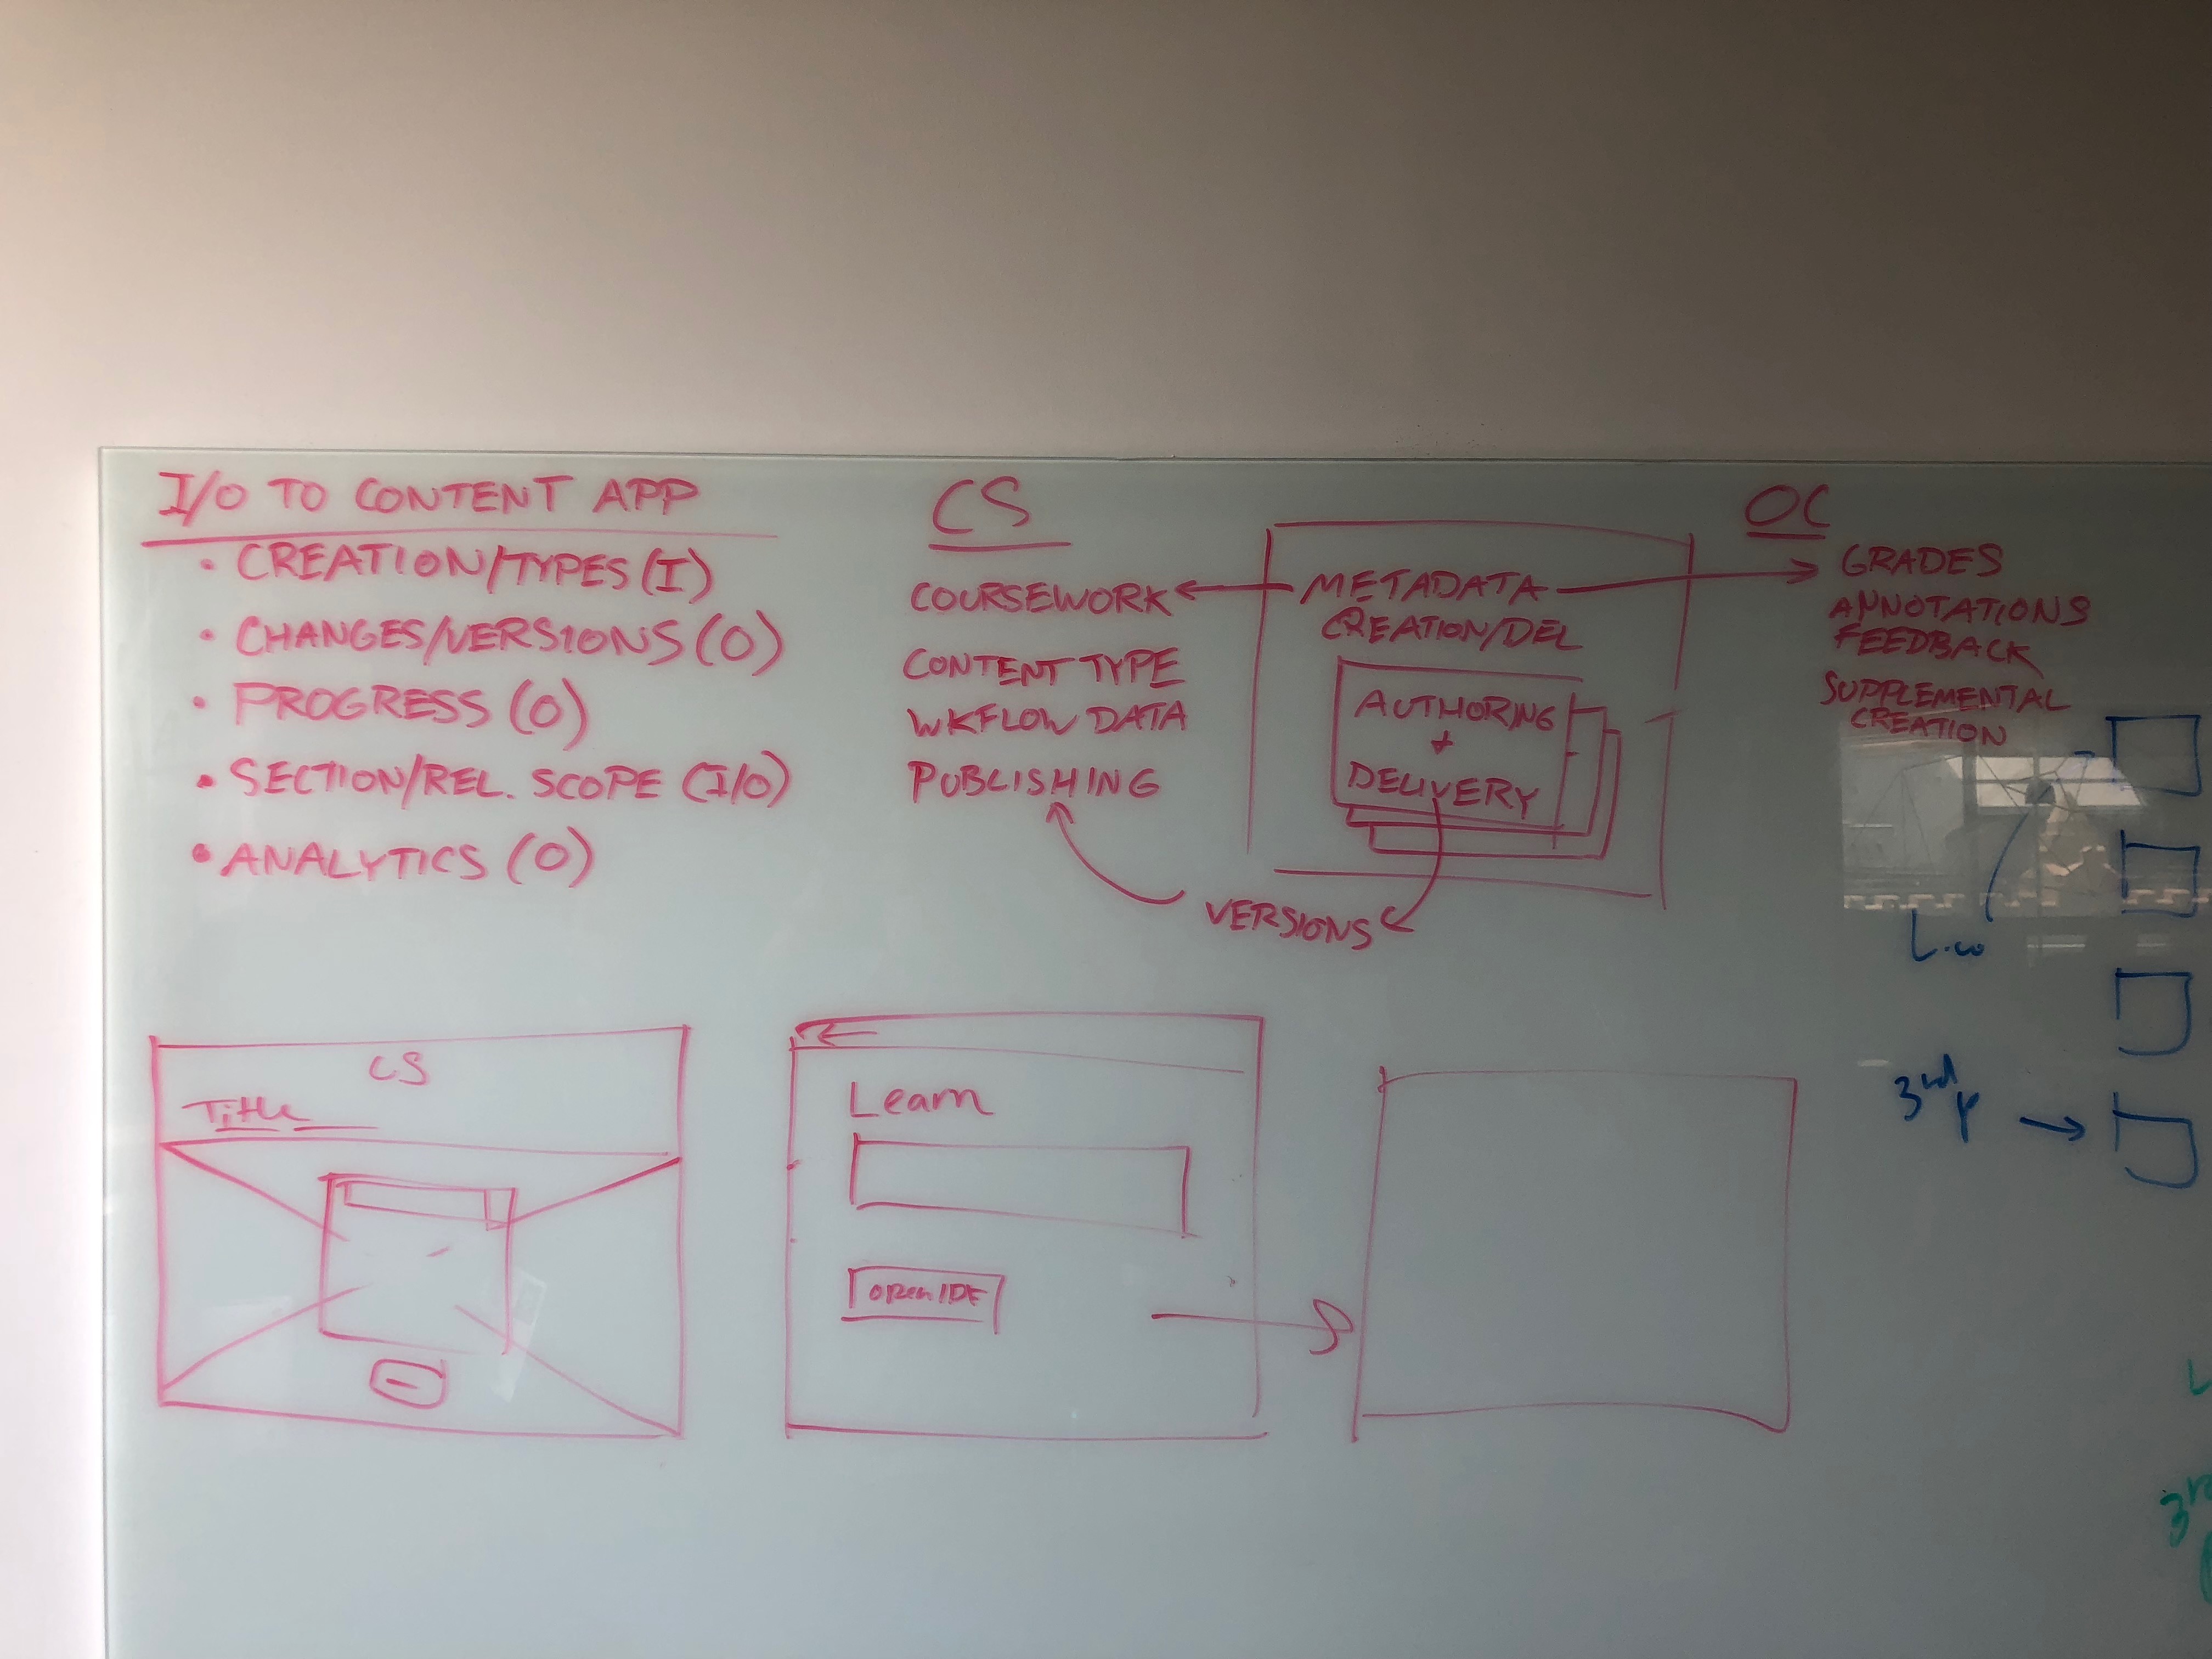 I/O TO CONTENT APP
• CREATION/TYPES (I)
• CHANGES/VERSIONS (O)
• PROGRESS (O)
• SECTION/REL. SCOPE (I/O)
• ANALYTICS (O)
CS
COURSEWORK
CONTENT TYPE
WKFLOW DATA
PUBLISHING
METADATA
CREATION/DEL
AUTHORING
+
DELIVERY
VERSIONS
OC
GRADES
ANNOTATIONS
FEEDBACK
SUPPLEMENTAL
CREATION
CS
Title
Learn
OPEN IDE
3rd